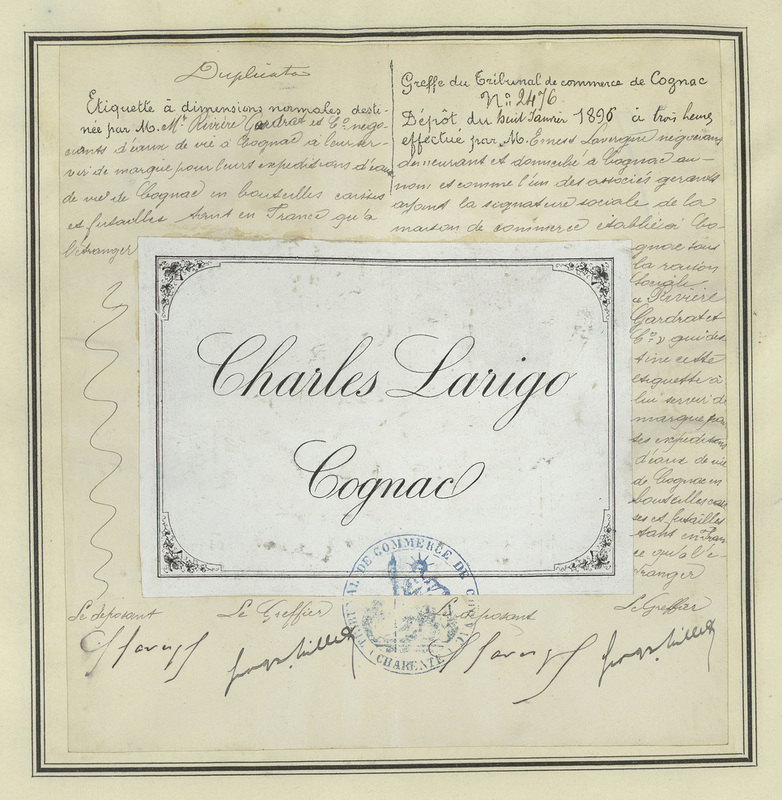 Duplicata
Etiquette à dimensions normales desti-
née par M. Mrs Rivière Gardrat et Co. négo-
ciants d'eaux de vie à Cognac à leur ser-
vir de marque pour leurs expéditions d'eaux
de vie de Cognac en bouteilles caisses
et futailles tant en France qu'à
l'étranger
Greffe du Tribunal de commerce de Cognac
No. 2476
Dépôt du huit Janvier 1896 à trois heures
effectué par M. Ernest Lavergne négociant
demeurant et domicilié à Cognac au
nom et comme l'un des associés gérants
ayant la signature sociale de la
maison de commerce établie à Co-
gnac sous
la raison
sociale
" Rivière
Gardrat et
Co. " qui des-
tine cette
étiquette à
lui servir de
marque pour
ses expéditions
d'eaux de vie
de Cognac en
bouteilles cais-
ses et futailles
tant en Fran-
ce qu'à l'é-
tranger
Charles Larigo
Cognac
TRIBUNAL DE COMMERCE DE COGNAC
(CHARENTE)
Le déposant Le Greffier Le déposant Le Greffier